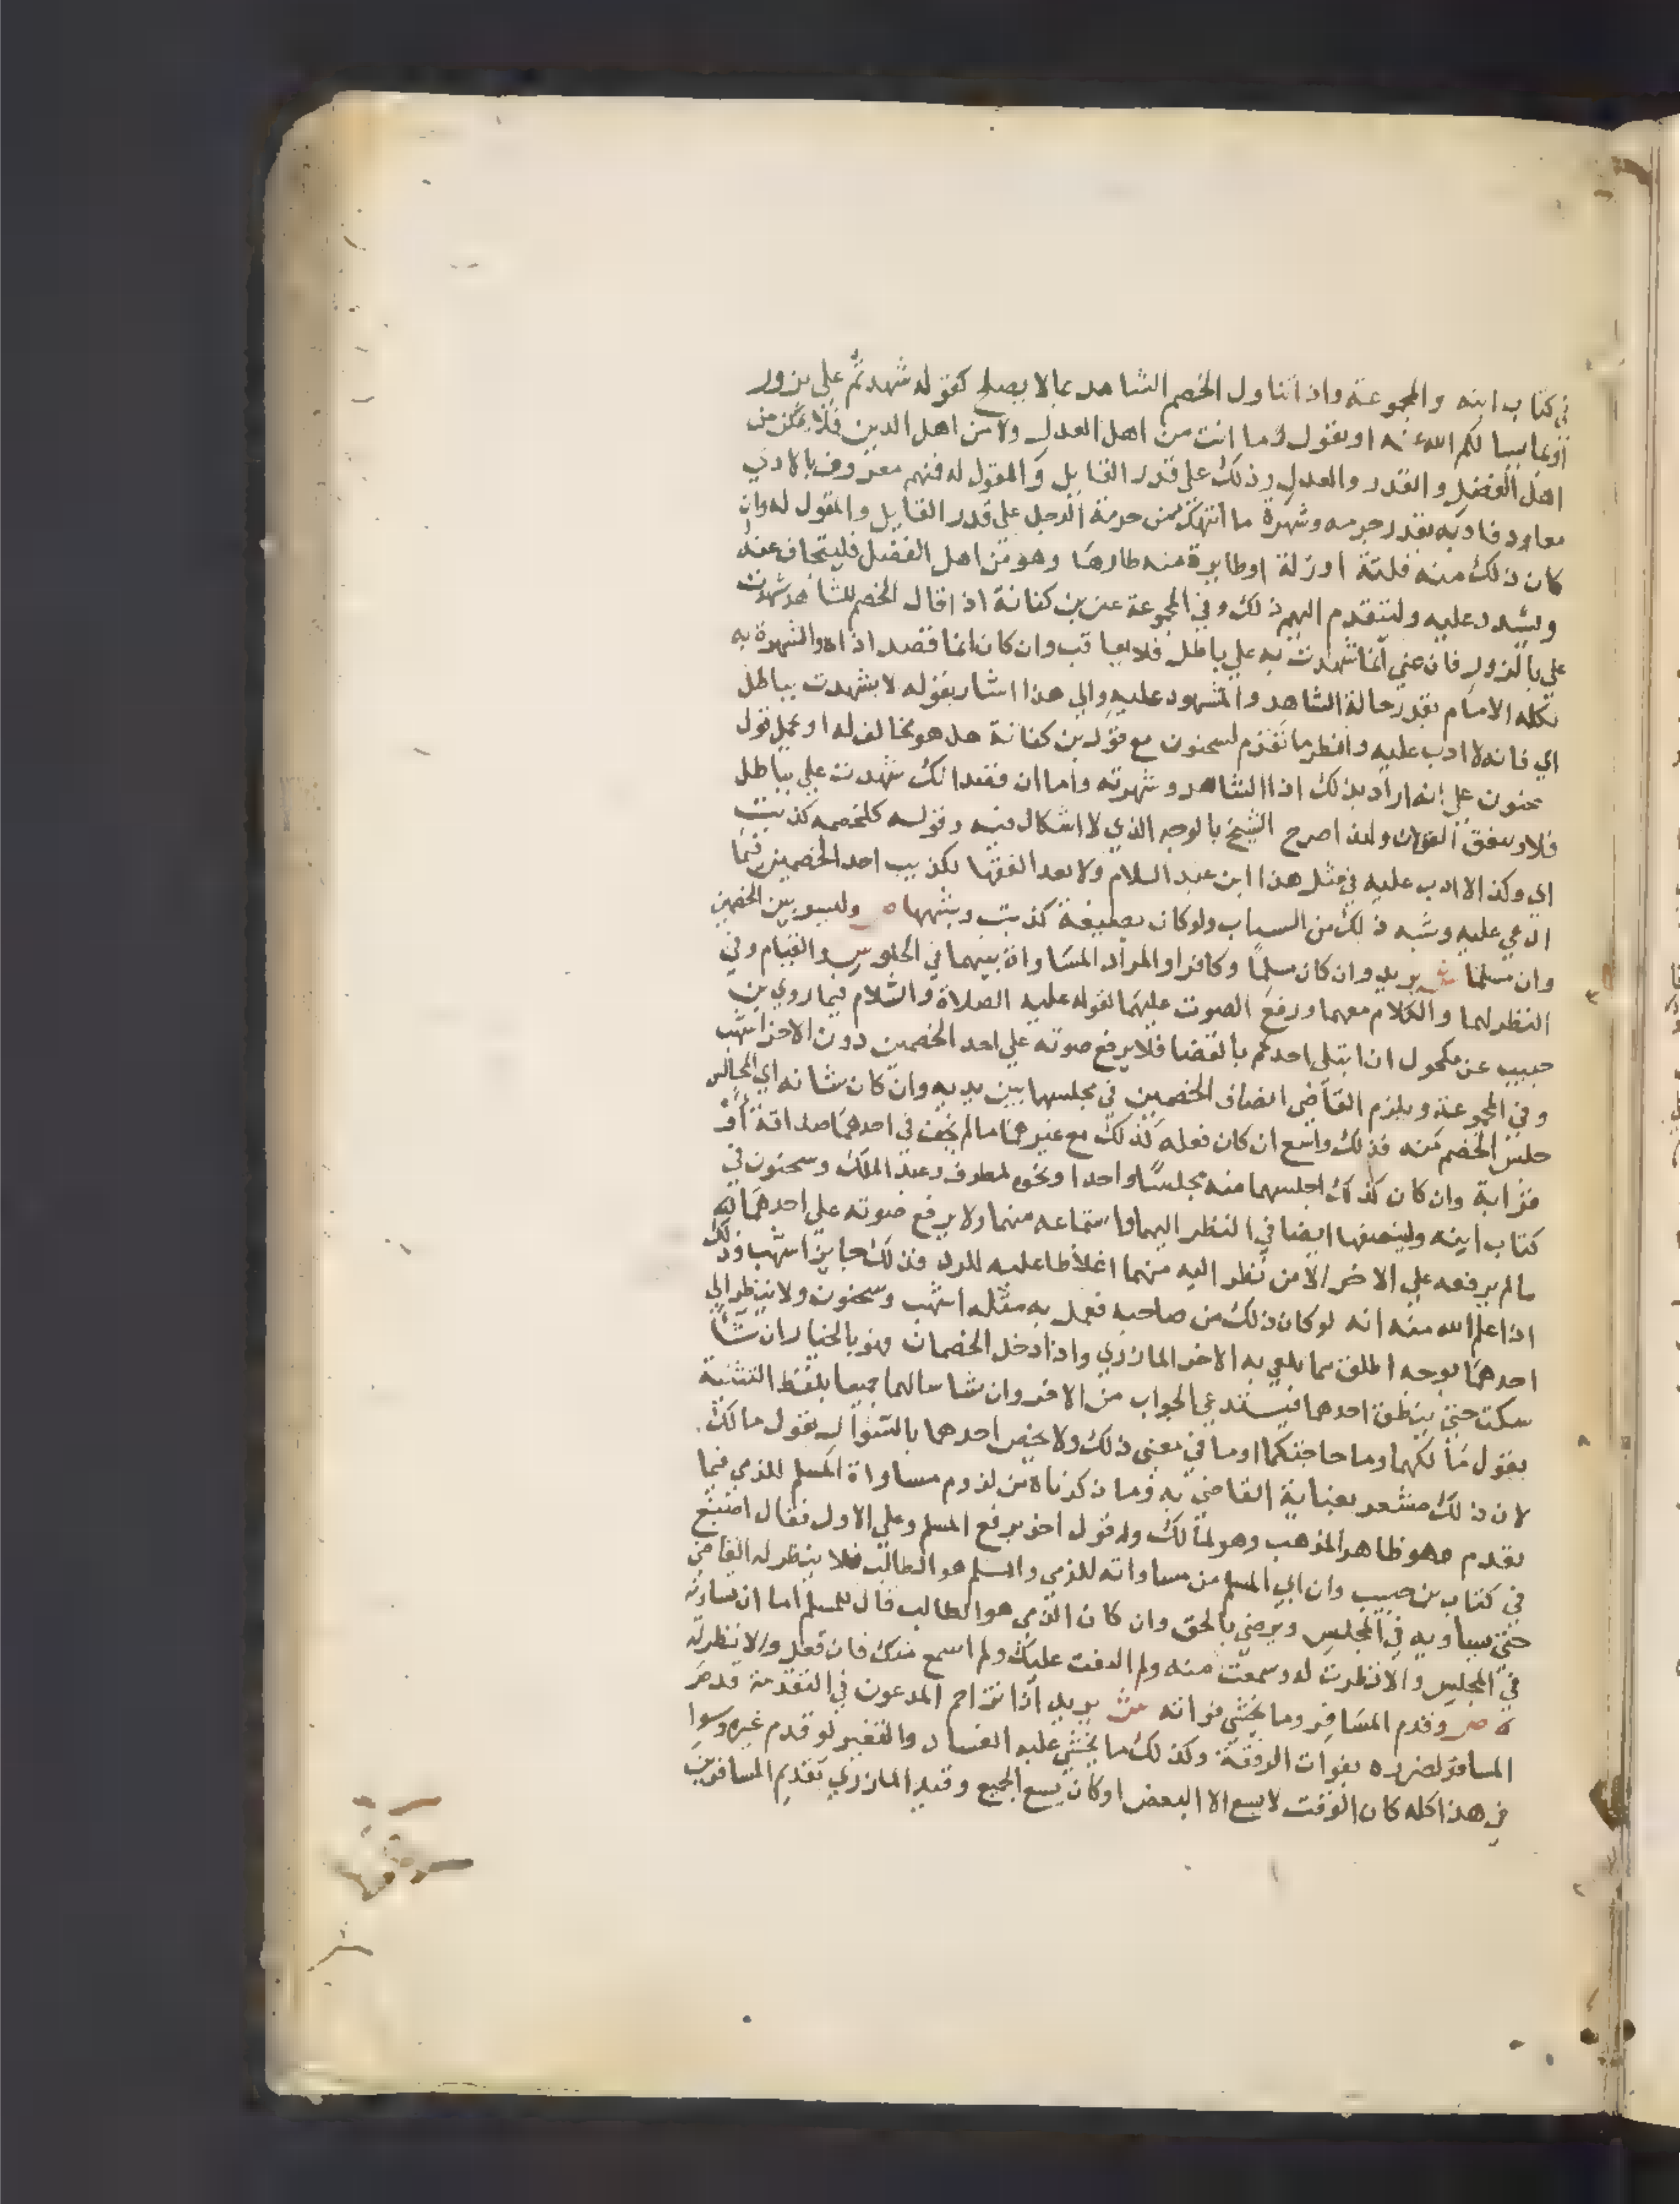 في كتاب ابنه والمجموعة واذا تناول الخصم الشاهد بما لا يصلح كقوله شهدتم علي بزور
او بما يسالكم الله عنه او يقول وما انت من اهل العدل ولا من اهل الدين فلا يمكن من
اهل الفضل والقدر والعدل وذلك علي قدر القايل والمقول له فمنهم معروف بالاذي
معاود فادبه بقدر جرمه وشهرة ما انتهك من حرمة الرجل علي قدر القايل والمقول له وان
كان ذلك منه فلتة او زلة او طايرة منه طارها وهو من اهل الفضل فليتجاف عنه
ويشدد عليه وليتقدم اليهم ذلك وفي المجموعة عن بن كنانة اذا قال الخصم للشاهد شهدت
علي بالزور فان عني انما شهدت به علي باطل فلا يعاقب وان كان انما قصد اذاه والشهرة به
نكله الامام بقدر حالة الشاهد والمشهود عليه والي هذا اشار بقوله لا بشهدت بباطل
اي فانه لا ادب عليه وانظر ما تقدم لسحنون مع قول بن كنانة هل هو مخالف له او يحمل قول
سحنون علي انه اراد بذلك اذا الشاهد وشهرته واما ان قصد انك شهدت علي بباطل
فلا ويتفق القولان ولهذا صرح الشيخ بالوجه الذي لا اشكال فيه وقوله كلخصمه كذبت
اي وكذا لا ادب عليه في مثل هذا ابن عبد السلام ولا يعد الفقها تكذيب احد الخصمين فيما
ادعي عليه وشبه ذلك من السباب ولو كان بصيغة كذبت وشبهها ص وليسو بين الخصمين
وان مسلما ش يريد وان كان مسلما وكافرا والمراد المساواة بينهما في الجلوس والقيام وفي
النظر لهما والكلام معهما ورفع الصوت عليهما لقوله عليه الصلاة والسلام فيما روي بن
حبيب عن مكحول ان ابتلي احدكم بالقضا فلا يرفع صوته علي احد الخصمين دون الاخر اشهب
وفي المجموعة ويلزم القاضي انصاف الخصمين في مجلسهما بين يديه وان كان شانه اي المجالس
جلس الخصم منه فذلك واسع ان كان فعله كذلك مع غيرهما ما لم يخف في احدهما صداقة او
قرابة وان كان كذلك اجلسهما منه مجلسا واحدا ونحوه لمطرف وعبد الملك وسحنون في
كتاب ابنه ولينصفهما ايضا في النظر اليهما واستماعه منهما ولا يرفع صوته علي احدهما
ما لم يرفعه علي الاخر الا من نظر اليه منهما اغلاظا عليه للدد فذلك جايز اشهب وذلك
اذا علم الله منه انه لو كان ذلك من صاحبه فعل به مثله اشهب وسحنون ولا ينظر الي
احدهما بوجه اطلق مما يلقي به الاخر المازري واذا دخل الخصمان فهو بالخيار ان شا
سكت حتي ينطق احدهما فيستدعي الجواب من الاخر وان شا سالهما جميعا بلفظ التثنية
يقول ما لكما وما حاجتكما او ما في معني ذلك ولا يخص احدهما بالسوال يقول مالك
لان ذلك مشعر بعناية القاضي به وما ذكرناه من لزوم مساواة المسلم للذمي فيما
تقدم هو ظاهر المذهب وهو لمالك وله قول اخر يرفع المسلم وعلي الاول فقال اصبغ
في كتاب بن حبيب وان ابي المسلم من مساواته للذمي والمسلم هو الطالب فلا ينظر له القاضي
حتي يساويه في المجلس ويرضي بالحق وان كان الذمي هو الطالب قال للمسلم اما ان تساويه
في المجلس والا نظرت له وسمعت منه ولم التفت عليك ولم اسمع منك فان فعل والا نظر له
ه ص وقدم المسافر وما يخشي فواته ش يريد اذا تزاحم المدعون في التقدمة قدم
المسافر لضرره بفوات الرفقة وكذلك ما يخشي عليه الفساد والتغير لو قدم غيره وسوا
في هذا كله كان الوقت لا يسع الا البعض او كان يسع الجميع وقيد المازري تقديم المسافرين